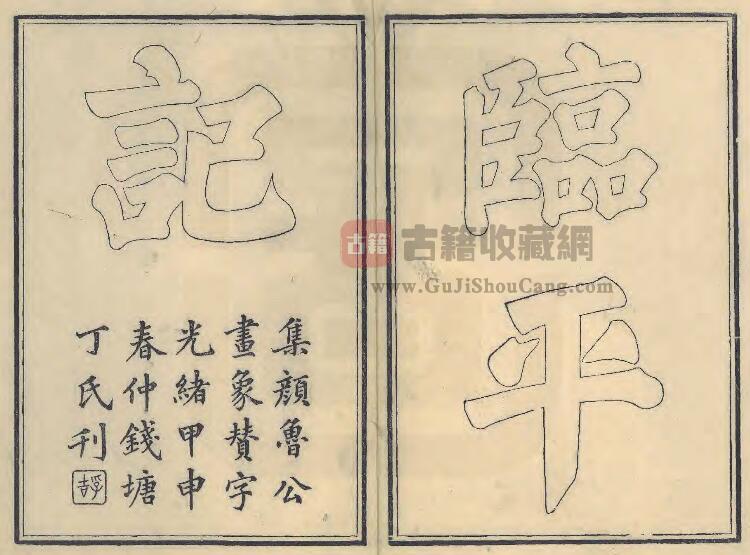 臨平
記
集顏魯公
畫象贊字
光緒甲申
春仲錢塘
丁氏刊
古籍
古籍收藏網
www.GuJiShouCang.com